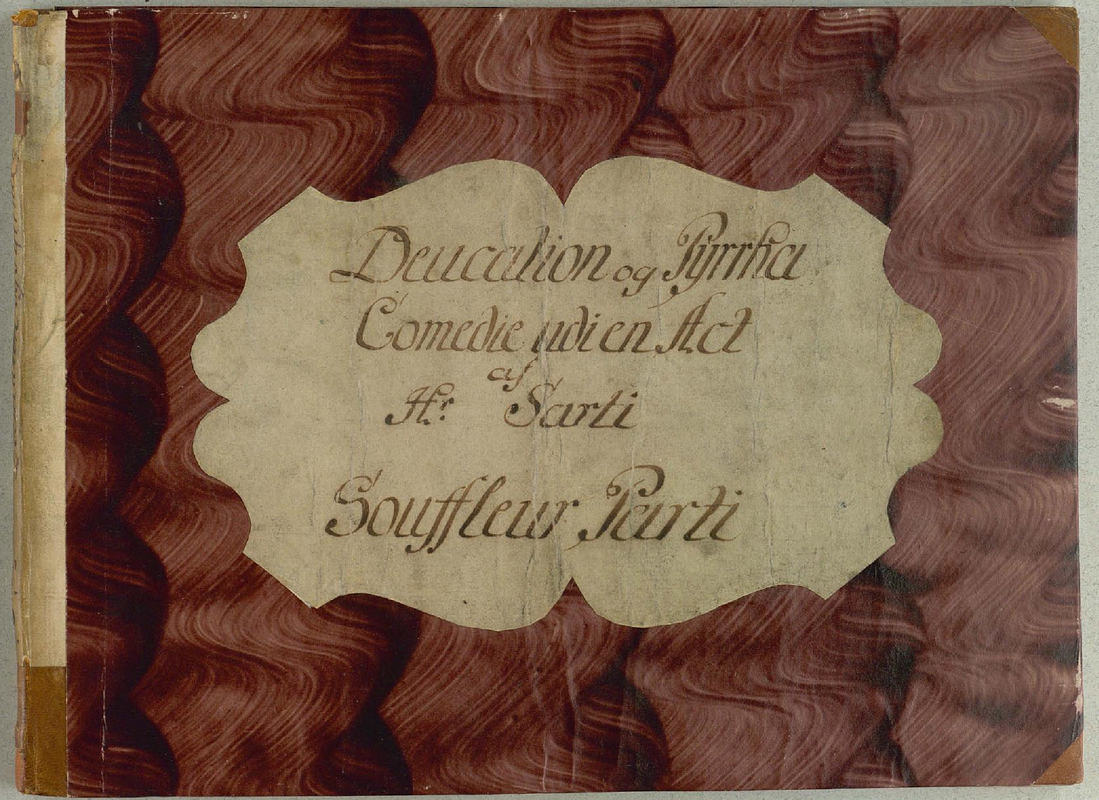 Deucalion og Pyrrha
Comedie udi en Act
af
Hr. Sarti
Souffleur Parti